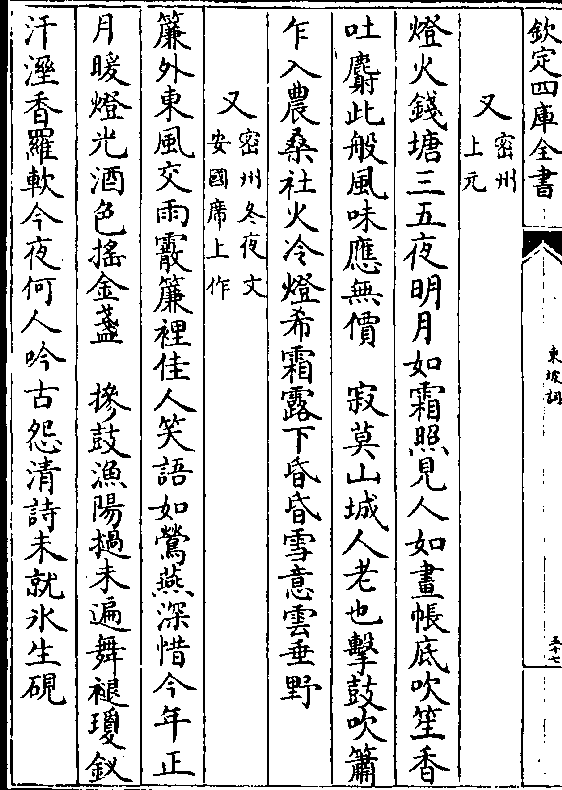 欽定四庫全書
東坡詞
五十七
又
密州
上元
燈火錢塘三五夜明月如霜照見人如畫帳底吹笙香
吐麝此般風味應無價　寂莫山城人老也擊鼓吹簫
乍入農桑社火冷燈希霜露下昏昏雪意雲垂野
又
密州冬夜文
安國席上作
簾外東風交雨霰簾裡佳人笑語如鶯燕深惜今年正
月暖燈光酒色搖金盞　摻鼓漁陽撾未遍舞褪瓊釵
汗溼香羅軟今夜何人吟古怨清詩未就氷生硯